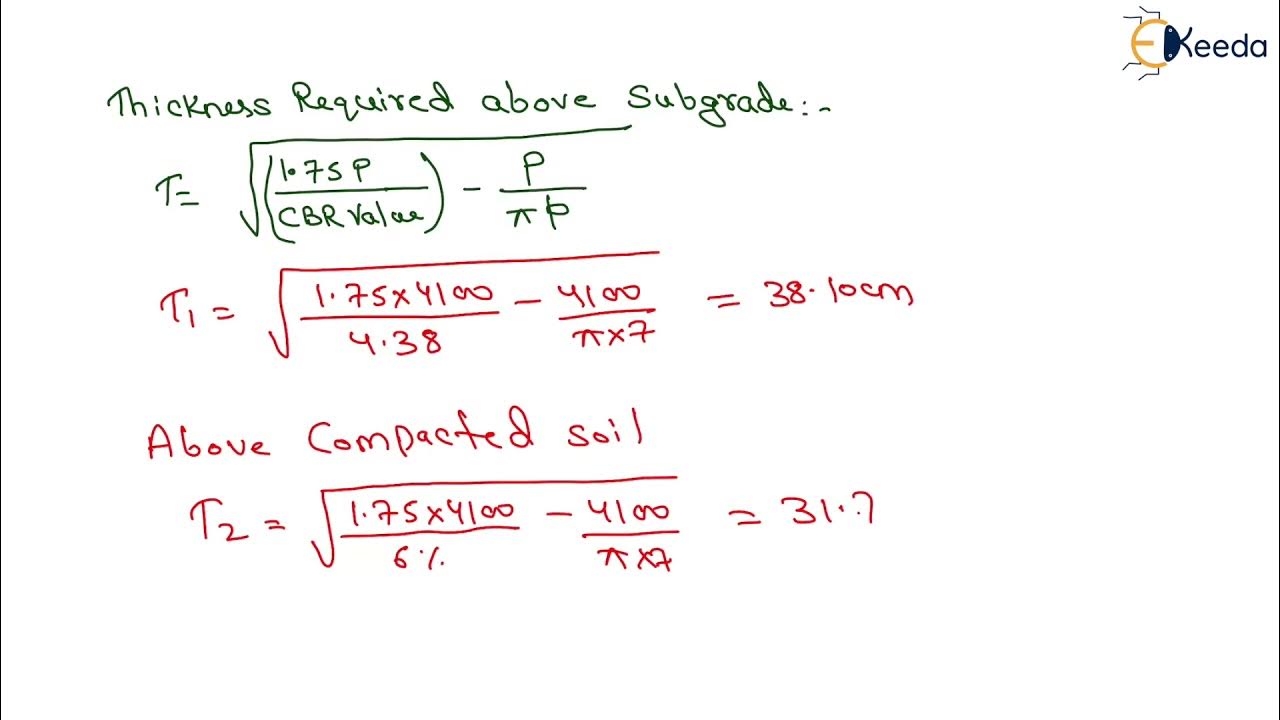 EKeeda
Thickness Required above Subgrade:-
T= √((1.75P/CBR Value) - P/πp)
T1 = √(1.75×4100/4.38 - 4100/π×7) = 38.10cm
Above Compacted soil
T2 = √(1.75×4100/6% - 4100/π×7) = 31.7